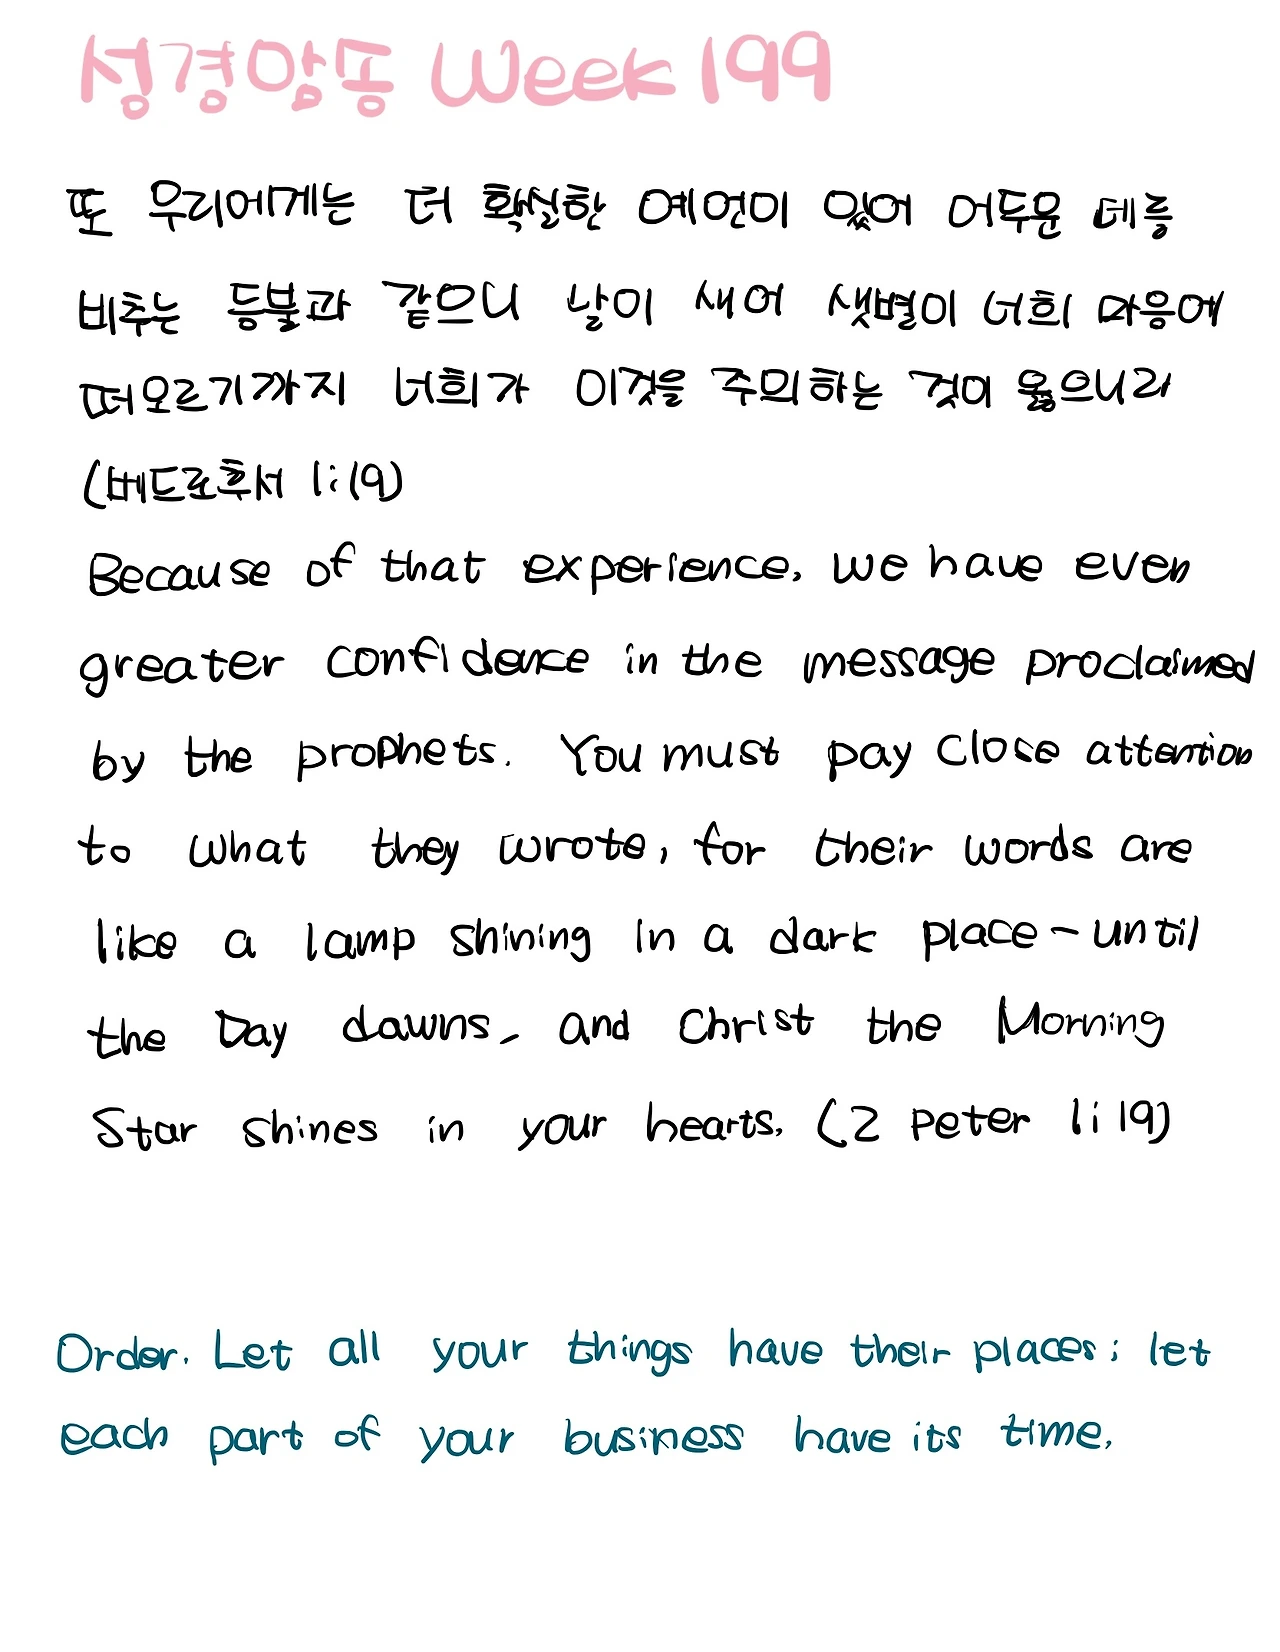 성경암송 Week 199
또 우리에게는 더 확실한 예언이 있어 어두운 데를
비추는 등불과 같으니 날이 새어 샛별이 너희 마음에
떠오르기까지 너희가 이것을 주의하는 것이 옳으니라
(베드로후서 1:19)
Because of that experience, we have even
greater confidence in the message proclaimed
by the prophets. You must pay close attention
to what they wrote, for their words are
like a lamp shining in a dark place - until
the Day dawns, and Christ the Morning
Star shines in your hearts. (2 Peter 1:19)
Order. Let all your things have their places; let
each part of your business have its time.